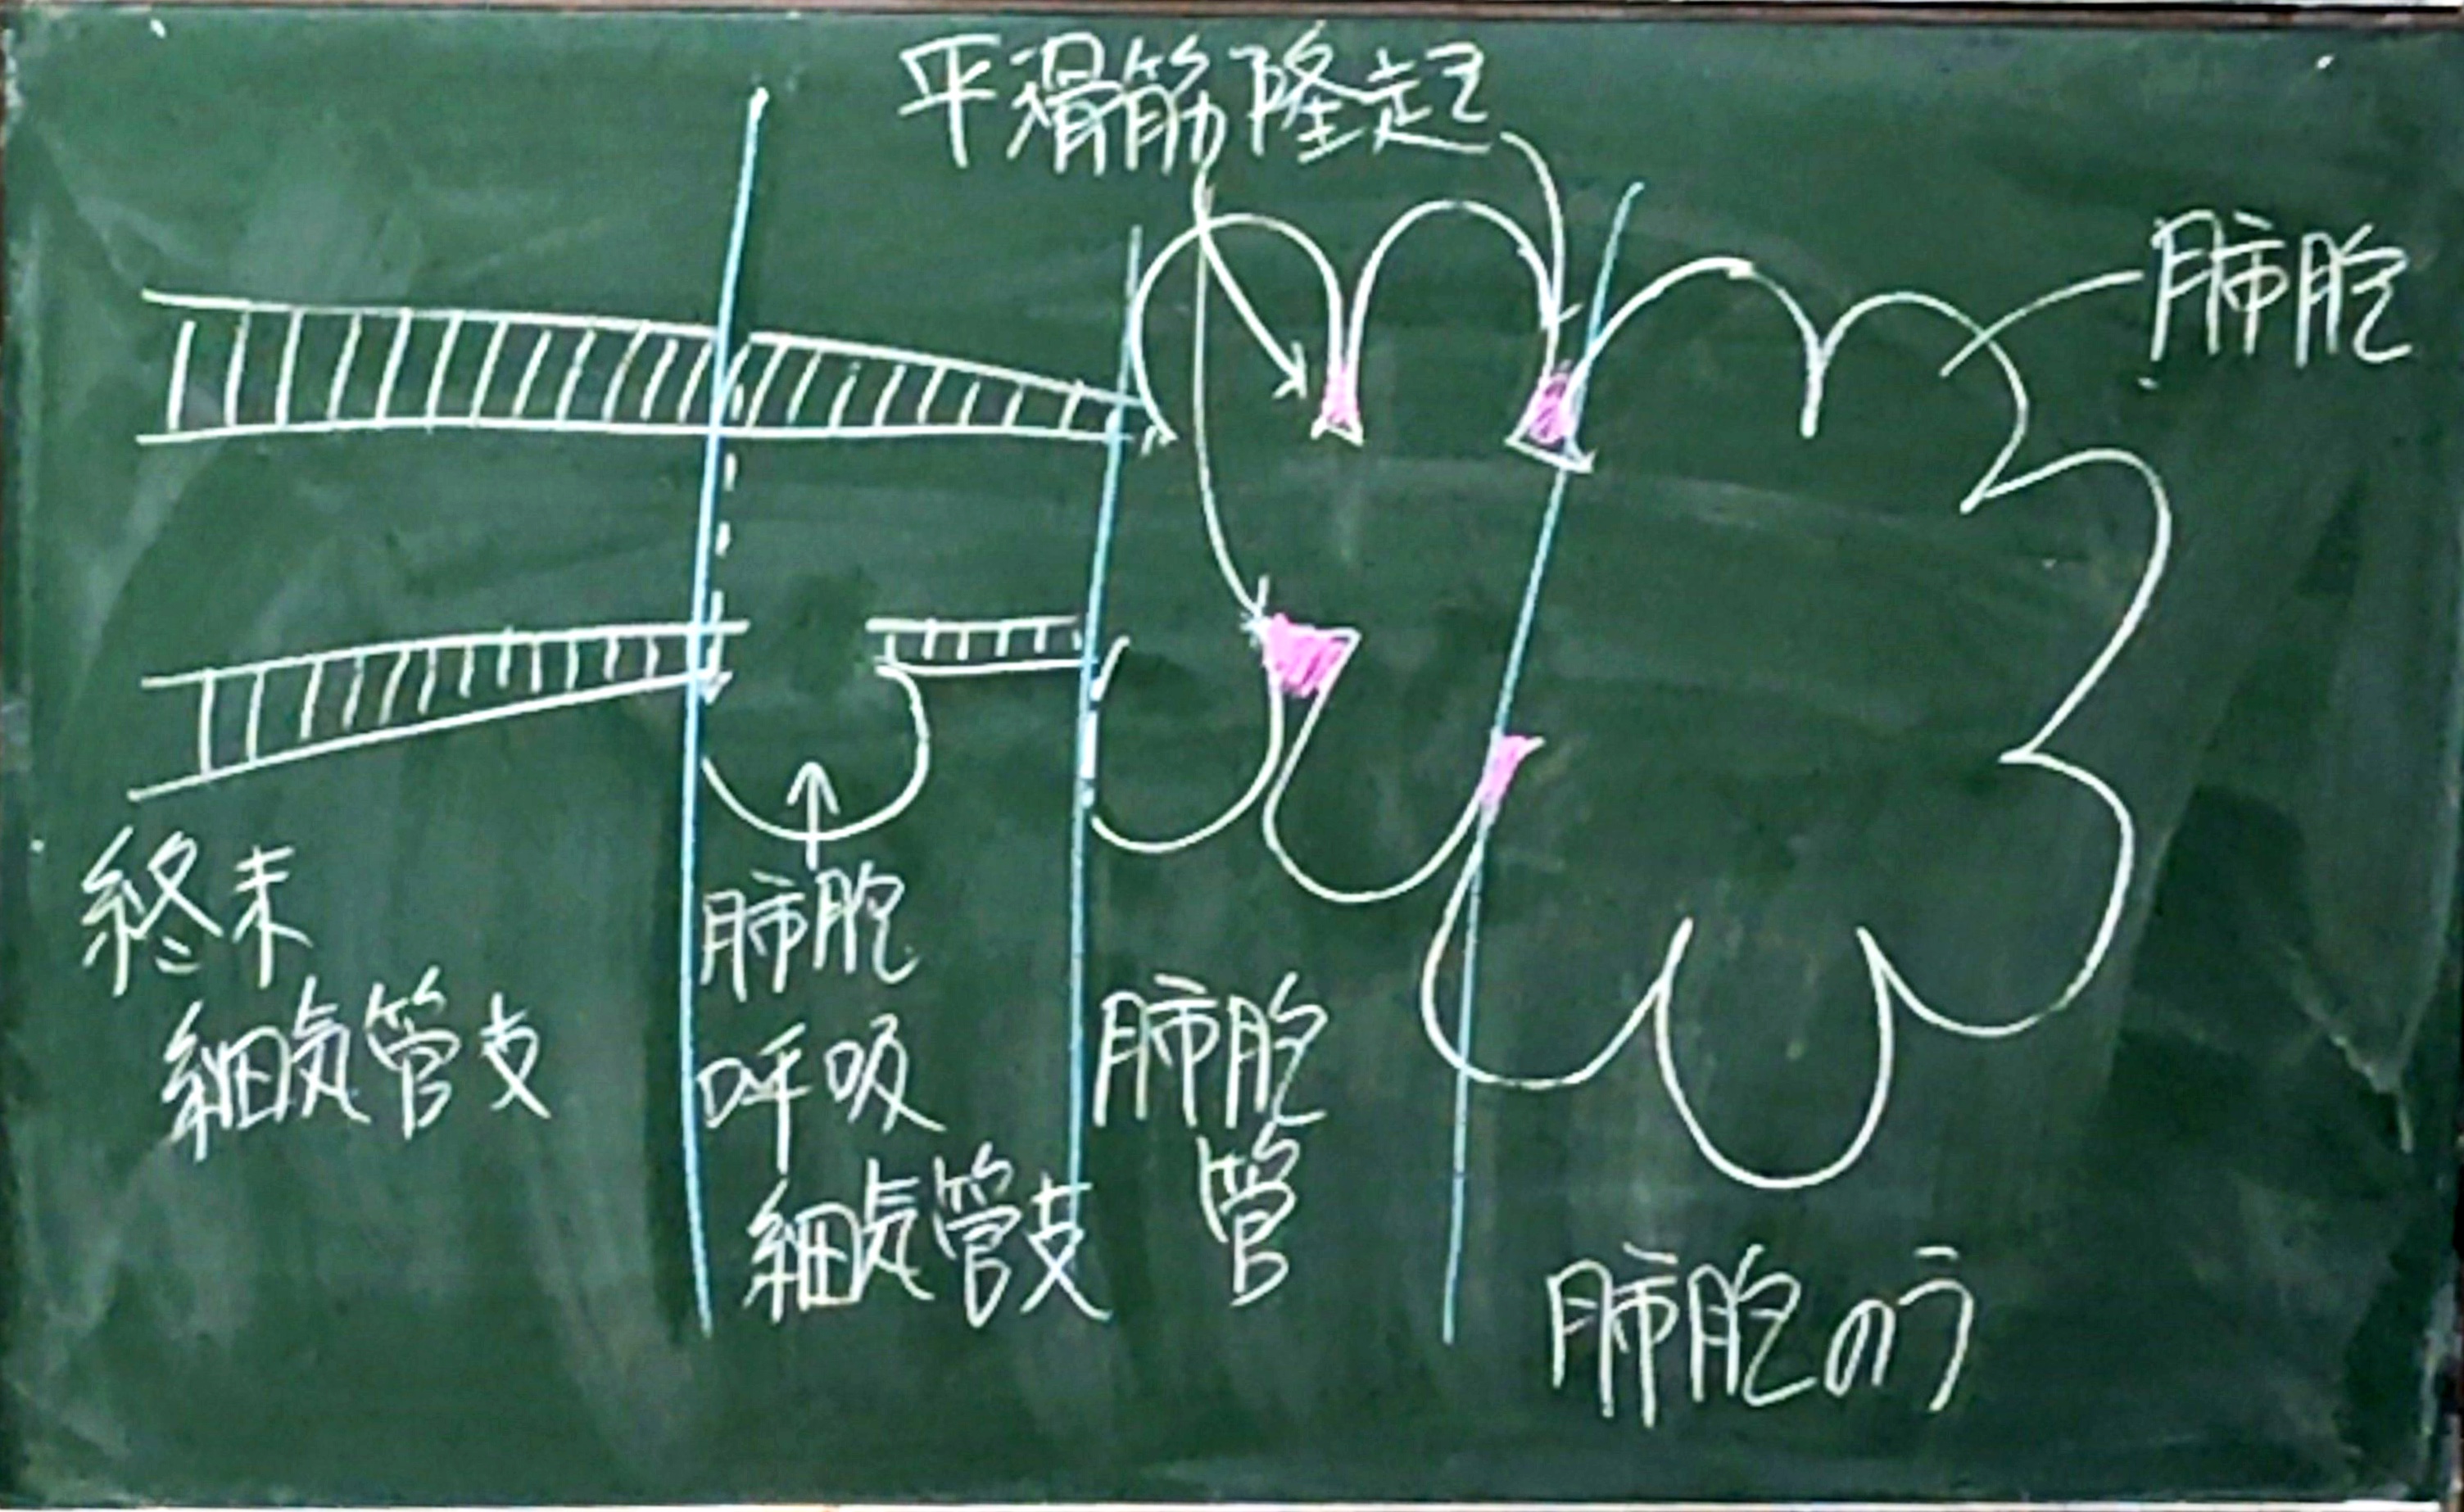 平滑筋隆起
肺胞
終末
細気管支
肺胞
呼吸
細気管支
肺胞
管
肺胞のう